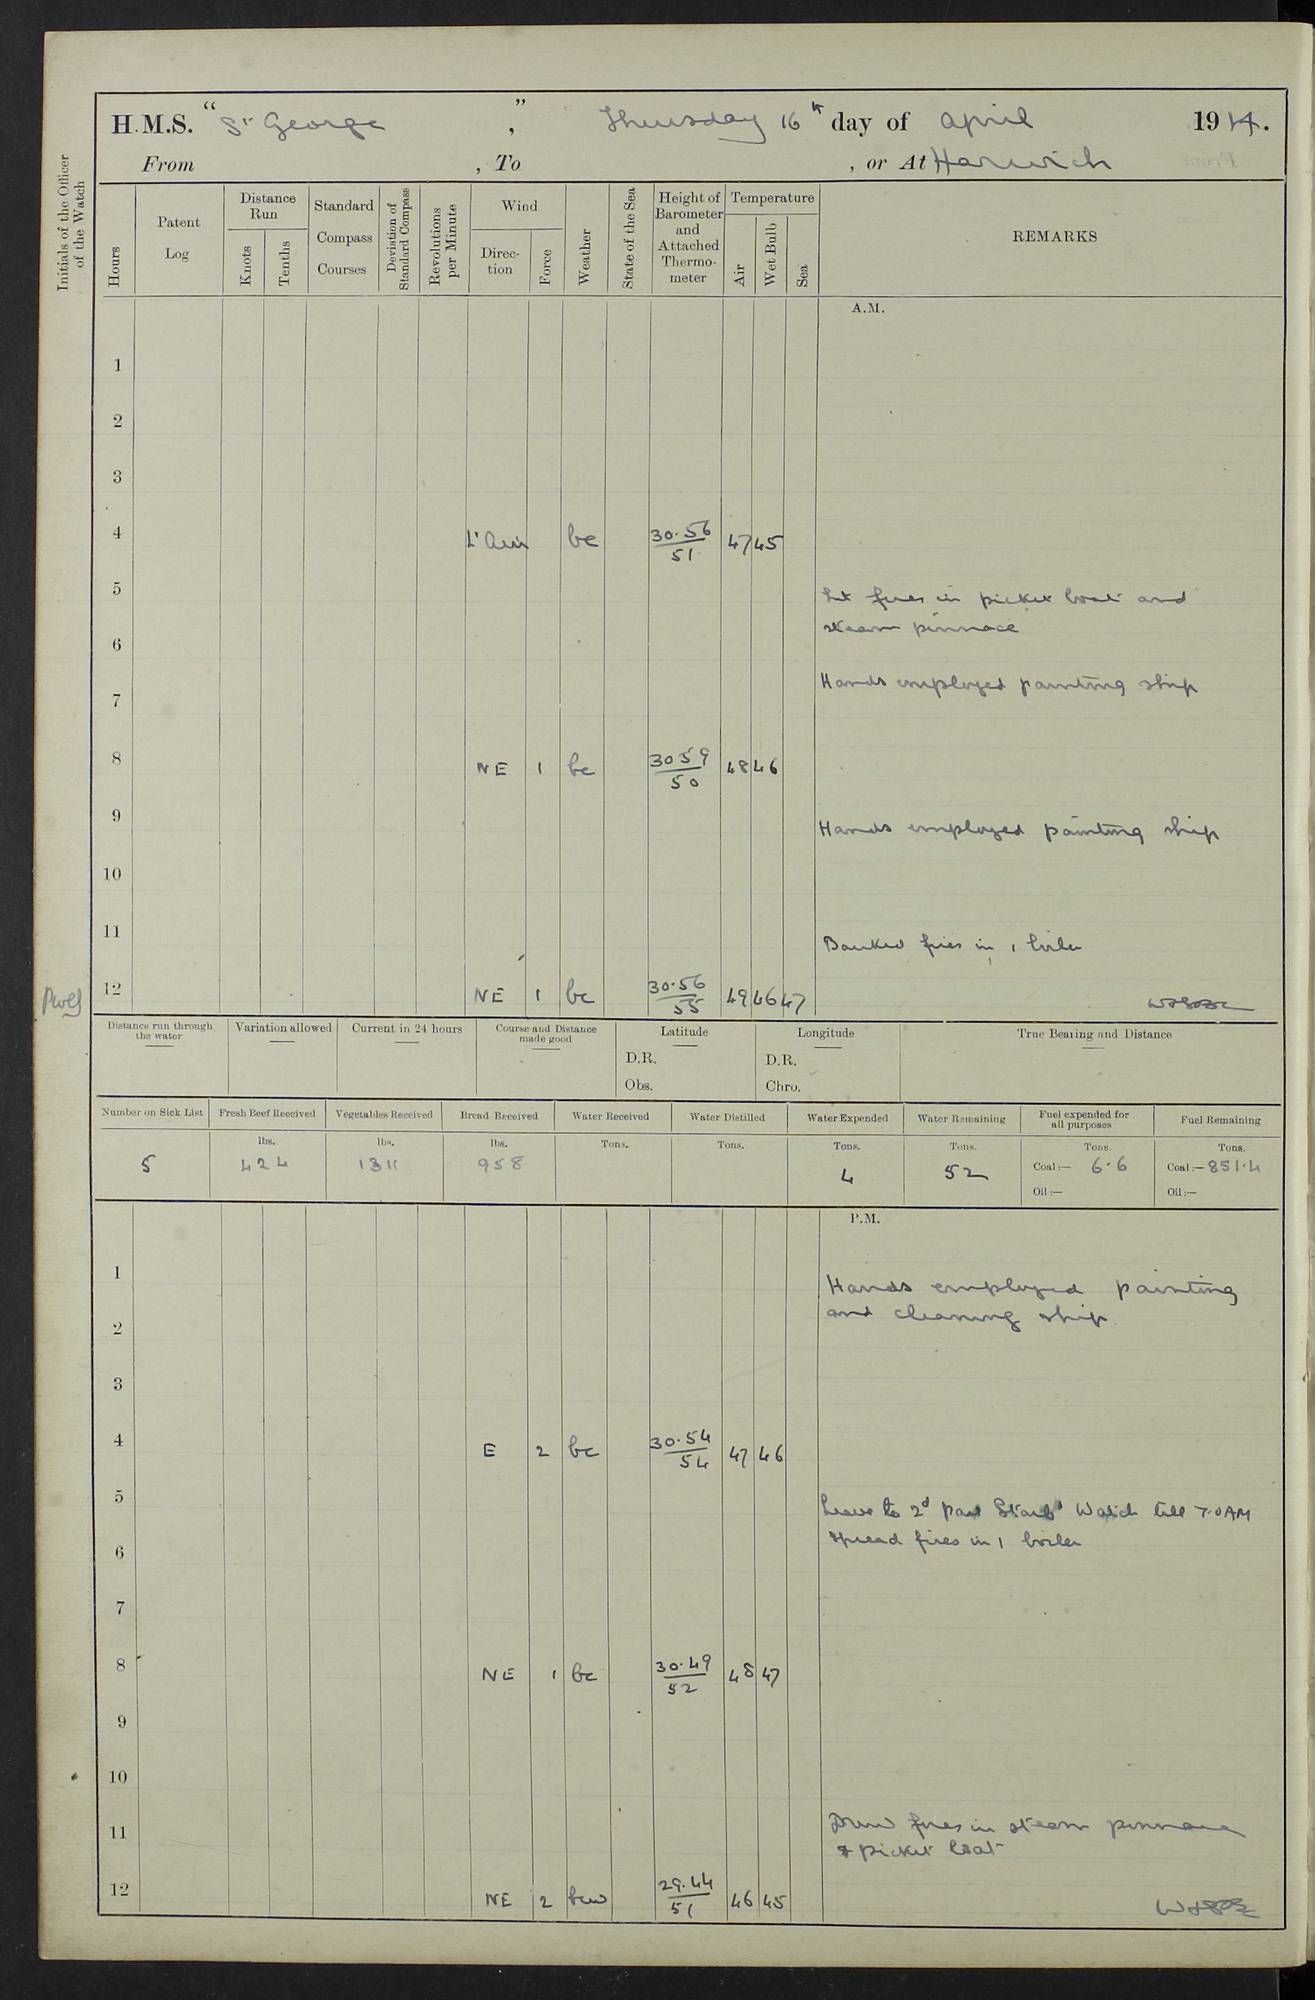 H.M.S. "St George", Thursday 16th day of April 1914.
From , To , or At Harwich
Initials of the Officer of the Watch
Hours
Patent Log
Distance Run
Knots
Tenths
Standard Compass Courses
Deviation of Standard Compass
Revolutions per Minute
Wind
Direction
Force
Weather
State of the Sea
Height of Barometer and Attached Thermometer
Temperature
Air
Wet Bulb
Sea
REMARKS
A.M.
1
2
3
4 Lt Airs bc 30.56/51 47 45
5 Lit fires in picket boat and
steam pinnace
6
Hands employed painting ship
7
8 NE 1 bc 30 59/50 48 46
9 Hands employed painting ship
10
11 Banked fires in 1 boiler
12 NE 1 bc 30.56/55 49 46 47
Distance run through the water
Variation allowed
Current in 24 hours
Course and Distance made good
Latitude
D.R.
Obs.
Longitude
D.R.
Chro.
True Bearing and Distance
Number on Sick List
5
Fresh Beef Received
lbs.
424
Vegetables Received
lbs.
1311
Bread Received
lbs.
958
Water Received
Tons.
Water Distilled
Tons.
Water Expended
Tons.
4
Water Remaining
Tons.
52
Fuel expended for all purposes
Tons.
Coal:— 6.6
Oil:—
Fuel Remaining
Tons.
Coal:— 851.4
Oil:—
P.M.
1 Hands employed painting
and cleaning ship.
2
3
4 E 2 bc 30.54/54 47 46
5 Leave to 2d Part Starbd Watch till 7.0 AM
Spread fires in 1 boiler
6
7
8 NE 1 bc 30.49/52 48 47
9
10
11 Drew fires in steam pinnace
& picket boat
12 NE 2 bcw 29.44/51 46 45